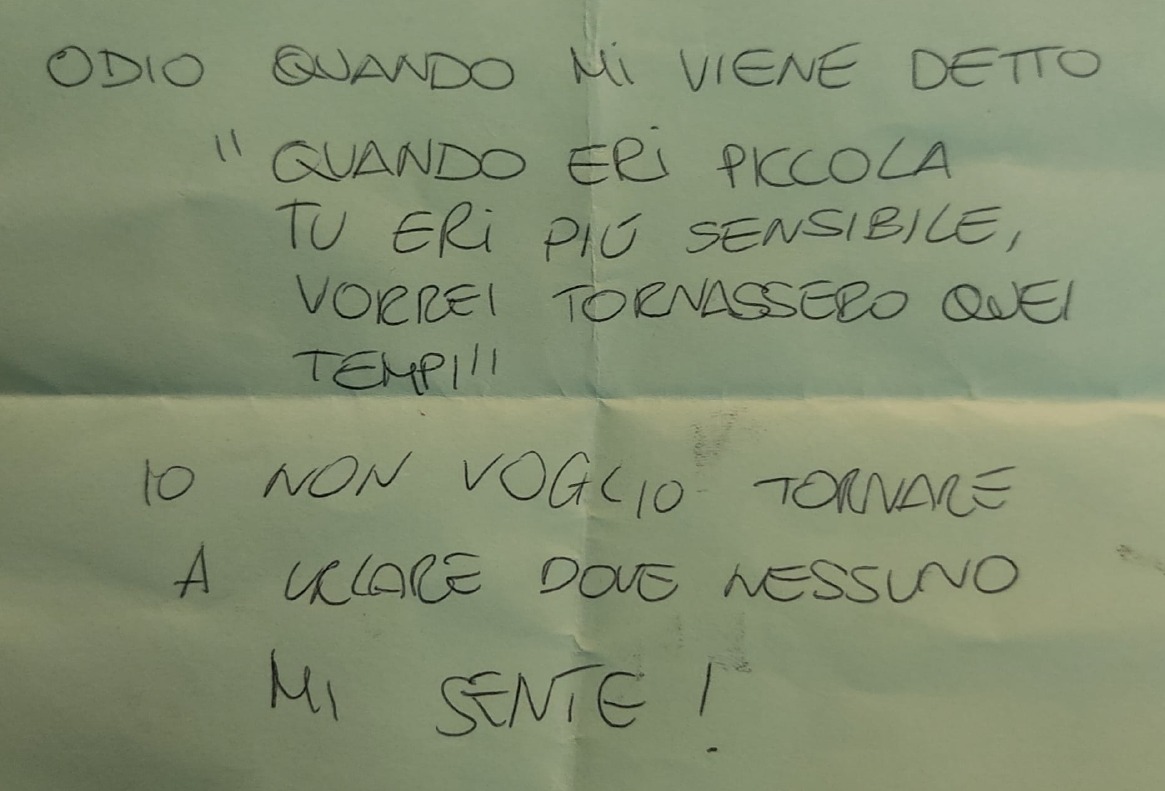 ODIO QUANDO Mi VIENE DETTO
"QUANDO ERi PICCOLA
TU ERi PIÚ SENSIBILE,
VORREI TORNASSERO QUEI
TEMPI"
IO NON VOGLIO TORNARE
A URLARE DOVE NESSUNO
MI SENTE!